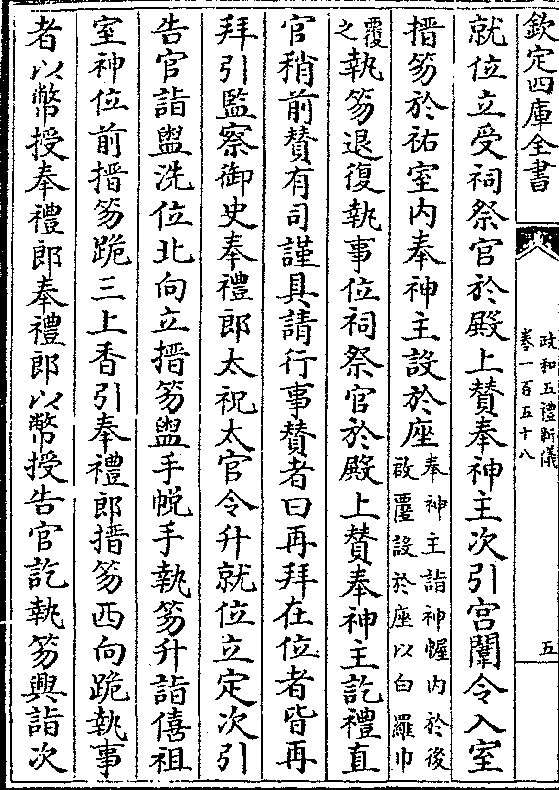 欽定四庫全書
政和五禮新儀
卷一百五十八
五
就位立受祠祭官於殿上贊奉神主次引宮闈令入室
搢笏於祐室内奉神主設於座奉神主詣神幄内於後
啟覆設於座以白羅巾
覆之執笏退復執事位祠祭官於殿上贊奉神主訖禮直
官稍前贊有司謹具請行事贊者曰再拜在位者皆再
拜引監察御史奉禮郎太祝太官令升就位立定次引
告官詣盥洗位北向立搢笏盥手帨手執笏升詣僖祖
室神位前搢笏跪三上香引奉禮郎搢笏西向跪執事
者以幣授奉禮郎奉禮郎以幣授告官訖執笏興詣次